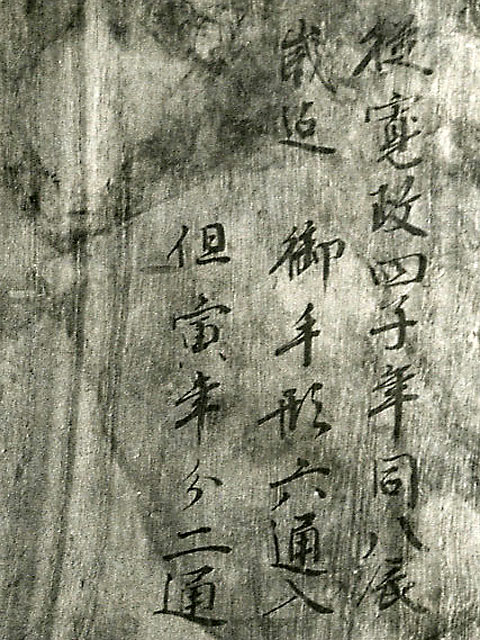 従寛政四子年同八辰
歳迠 御手形六通入
但寅年分二通